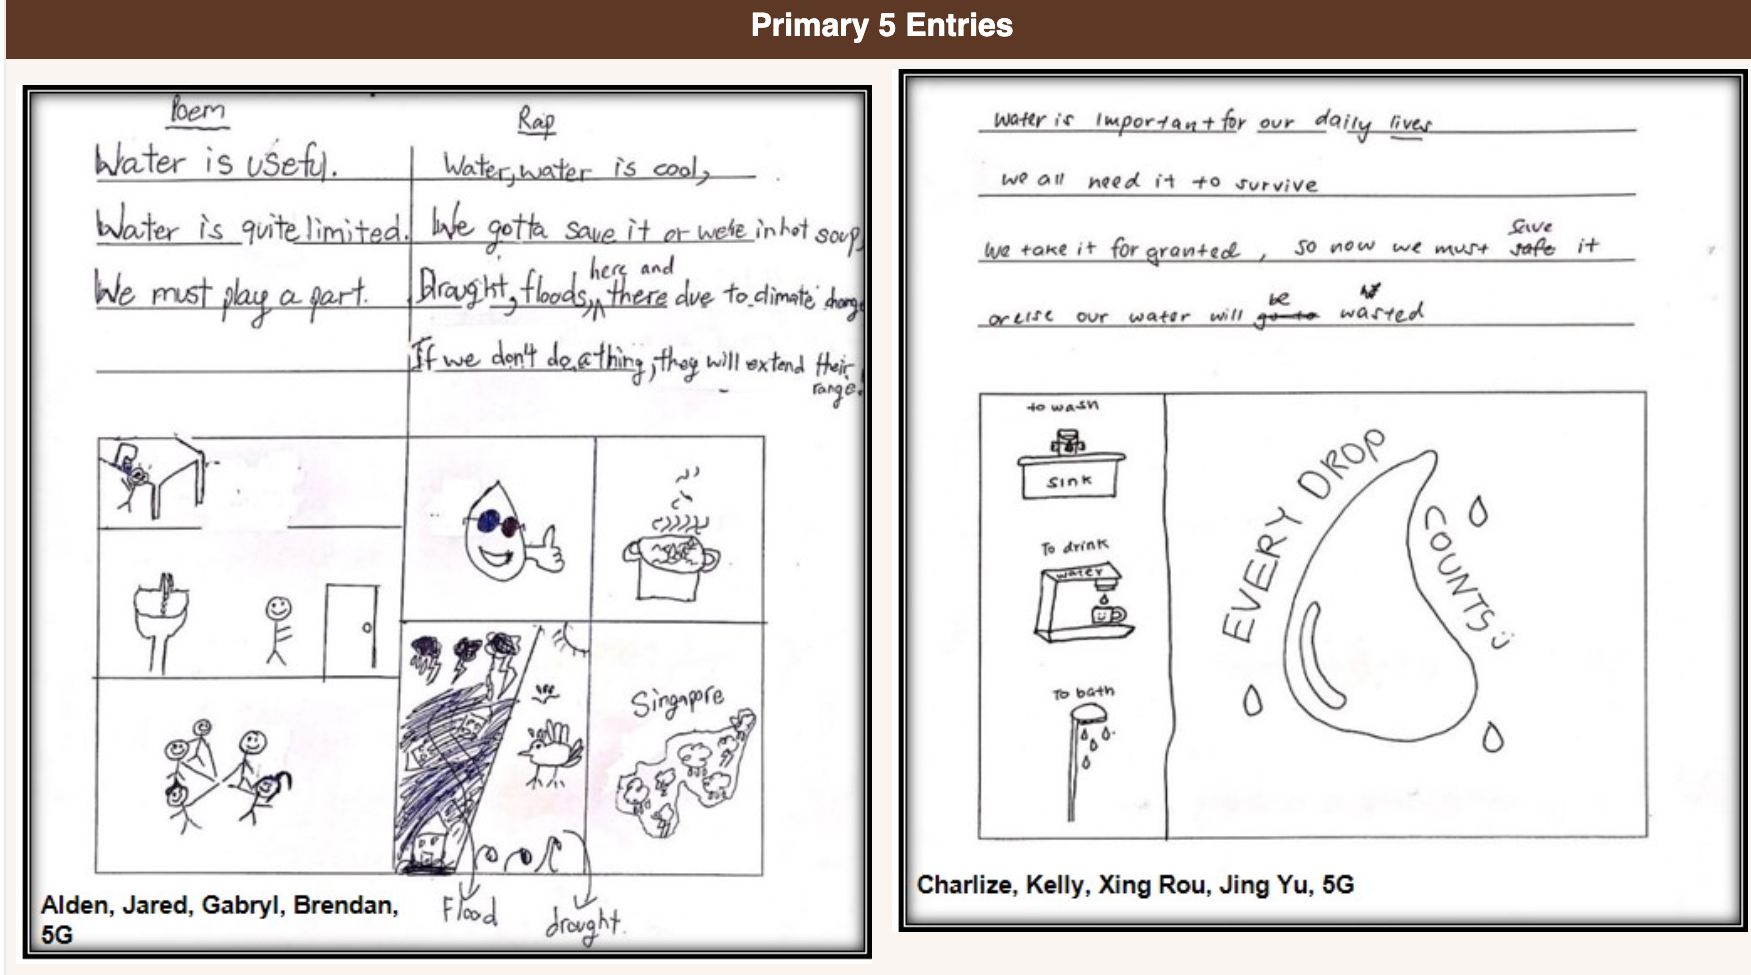 Primary 5 Entries
Poem
Water is useful.
Water is quite limited.
We must play a part.
Rap
Water, water is cool,
We gotta save it or we're in hot soup,
Drought, floods, here and there due to climate change
If we don't do a thing, they will extend their
range!
Singapore
Flood
drought.
Alden, Jared, Gabryl, Brendan,
5G
Water is important for our daily lives
we all need it to survive
we take it for granted, so now we must safe save it
or else our water will go to be wasted
to wash
SINK
To drink
water
To bath
EVERY DROP
COUNTS
Charlize, Kelly, Xing Rou, Jing Yu, 5G